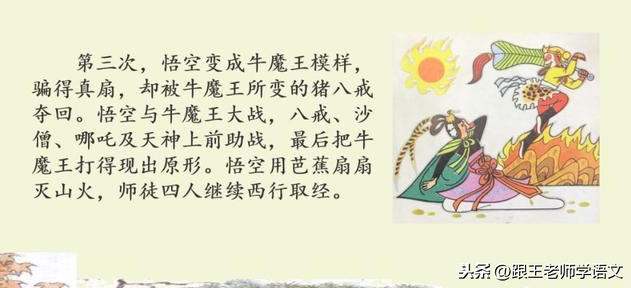 第三次，悟空变成牛魔王模样，
骗得真扇，却被牛魔王所变的猪八戒
夺回。悟空与牛魔王大战，八戒、沙
僧、哪吒及天神上前助战，最后把牛
魔王打得现出原形。悟空用芭蕉扇扇
灭山火，师徒四人继续西行取经。
头条@跟王老师学语文